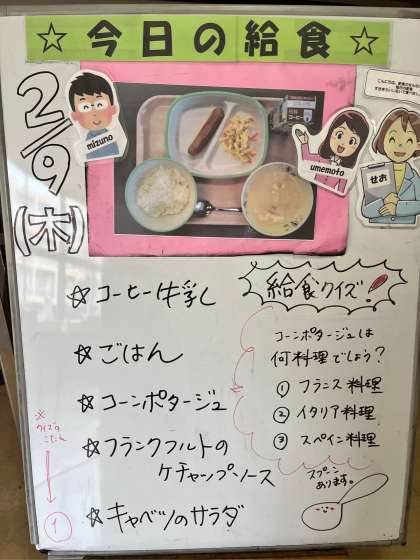 ☆今日の給食☆
2/9
(木)
mizuno
umemoto
せお
☆コーヒー牛乳
☆ごはん
☆コーンポタージュ
☆フランクフルトの
ケチャップソース
☆キャベツのサラダ
給食クイズ!
コーンポタージュは
何料理でしょう?
① フランス料理
② イタリア料理
③ スペイン料理
スプーン
あります。
※
クイズの
こたえ
①